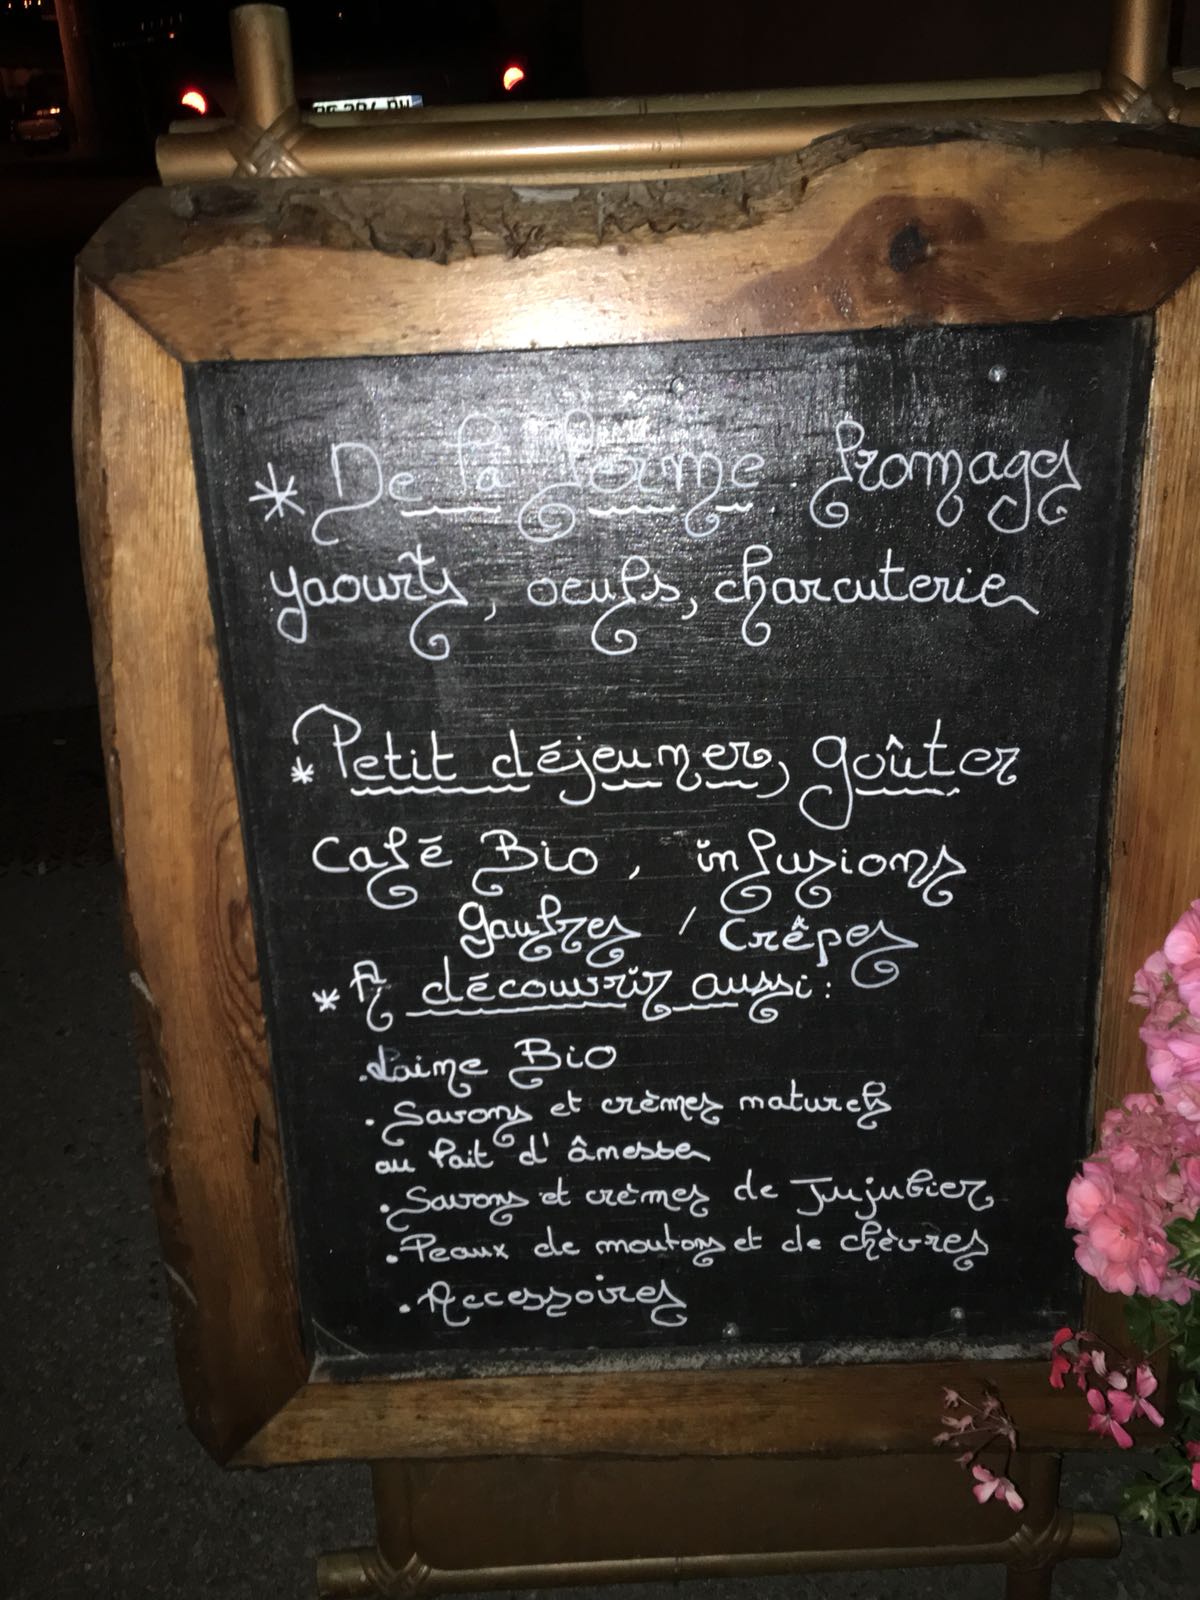 * De la ferme fromages
yaourts, oeufs, charcuterie
* Petit déjeuner, goûter
Café Bio, infusions
gaufres / Crêpes
* A découvrir aussi :
. Laine Bio
. Savons et crèmes naturels
au lait d'ânesse
. Savons et crèmes de Jujubier
. Peaux de moutons et de chèvres
. Accessoires